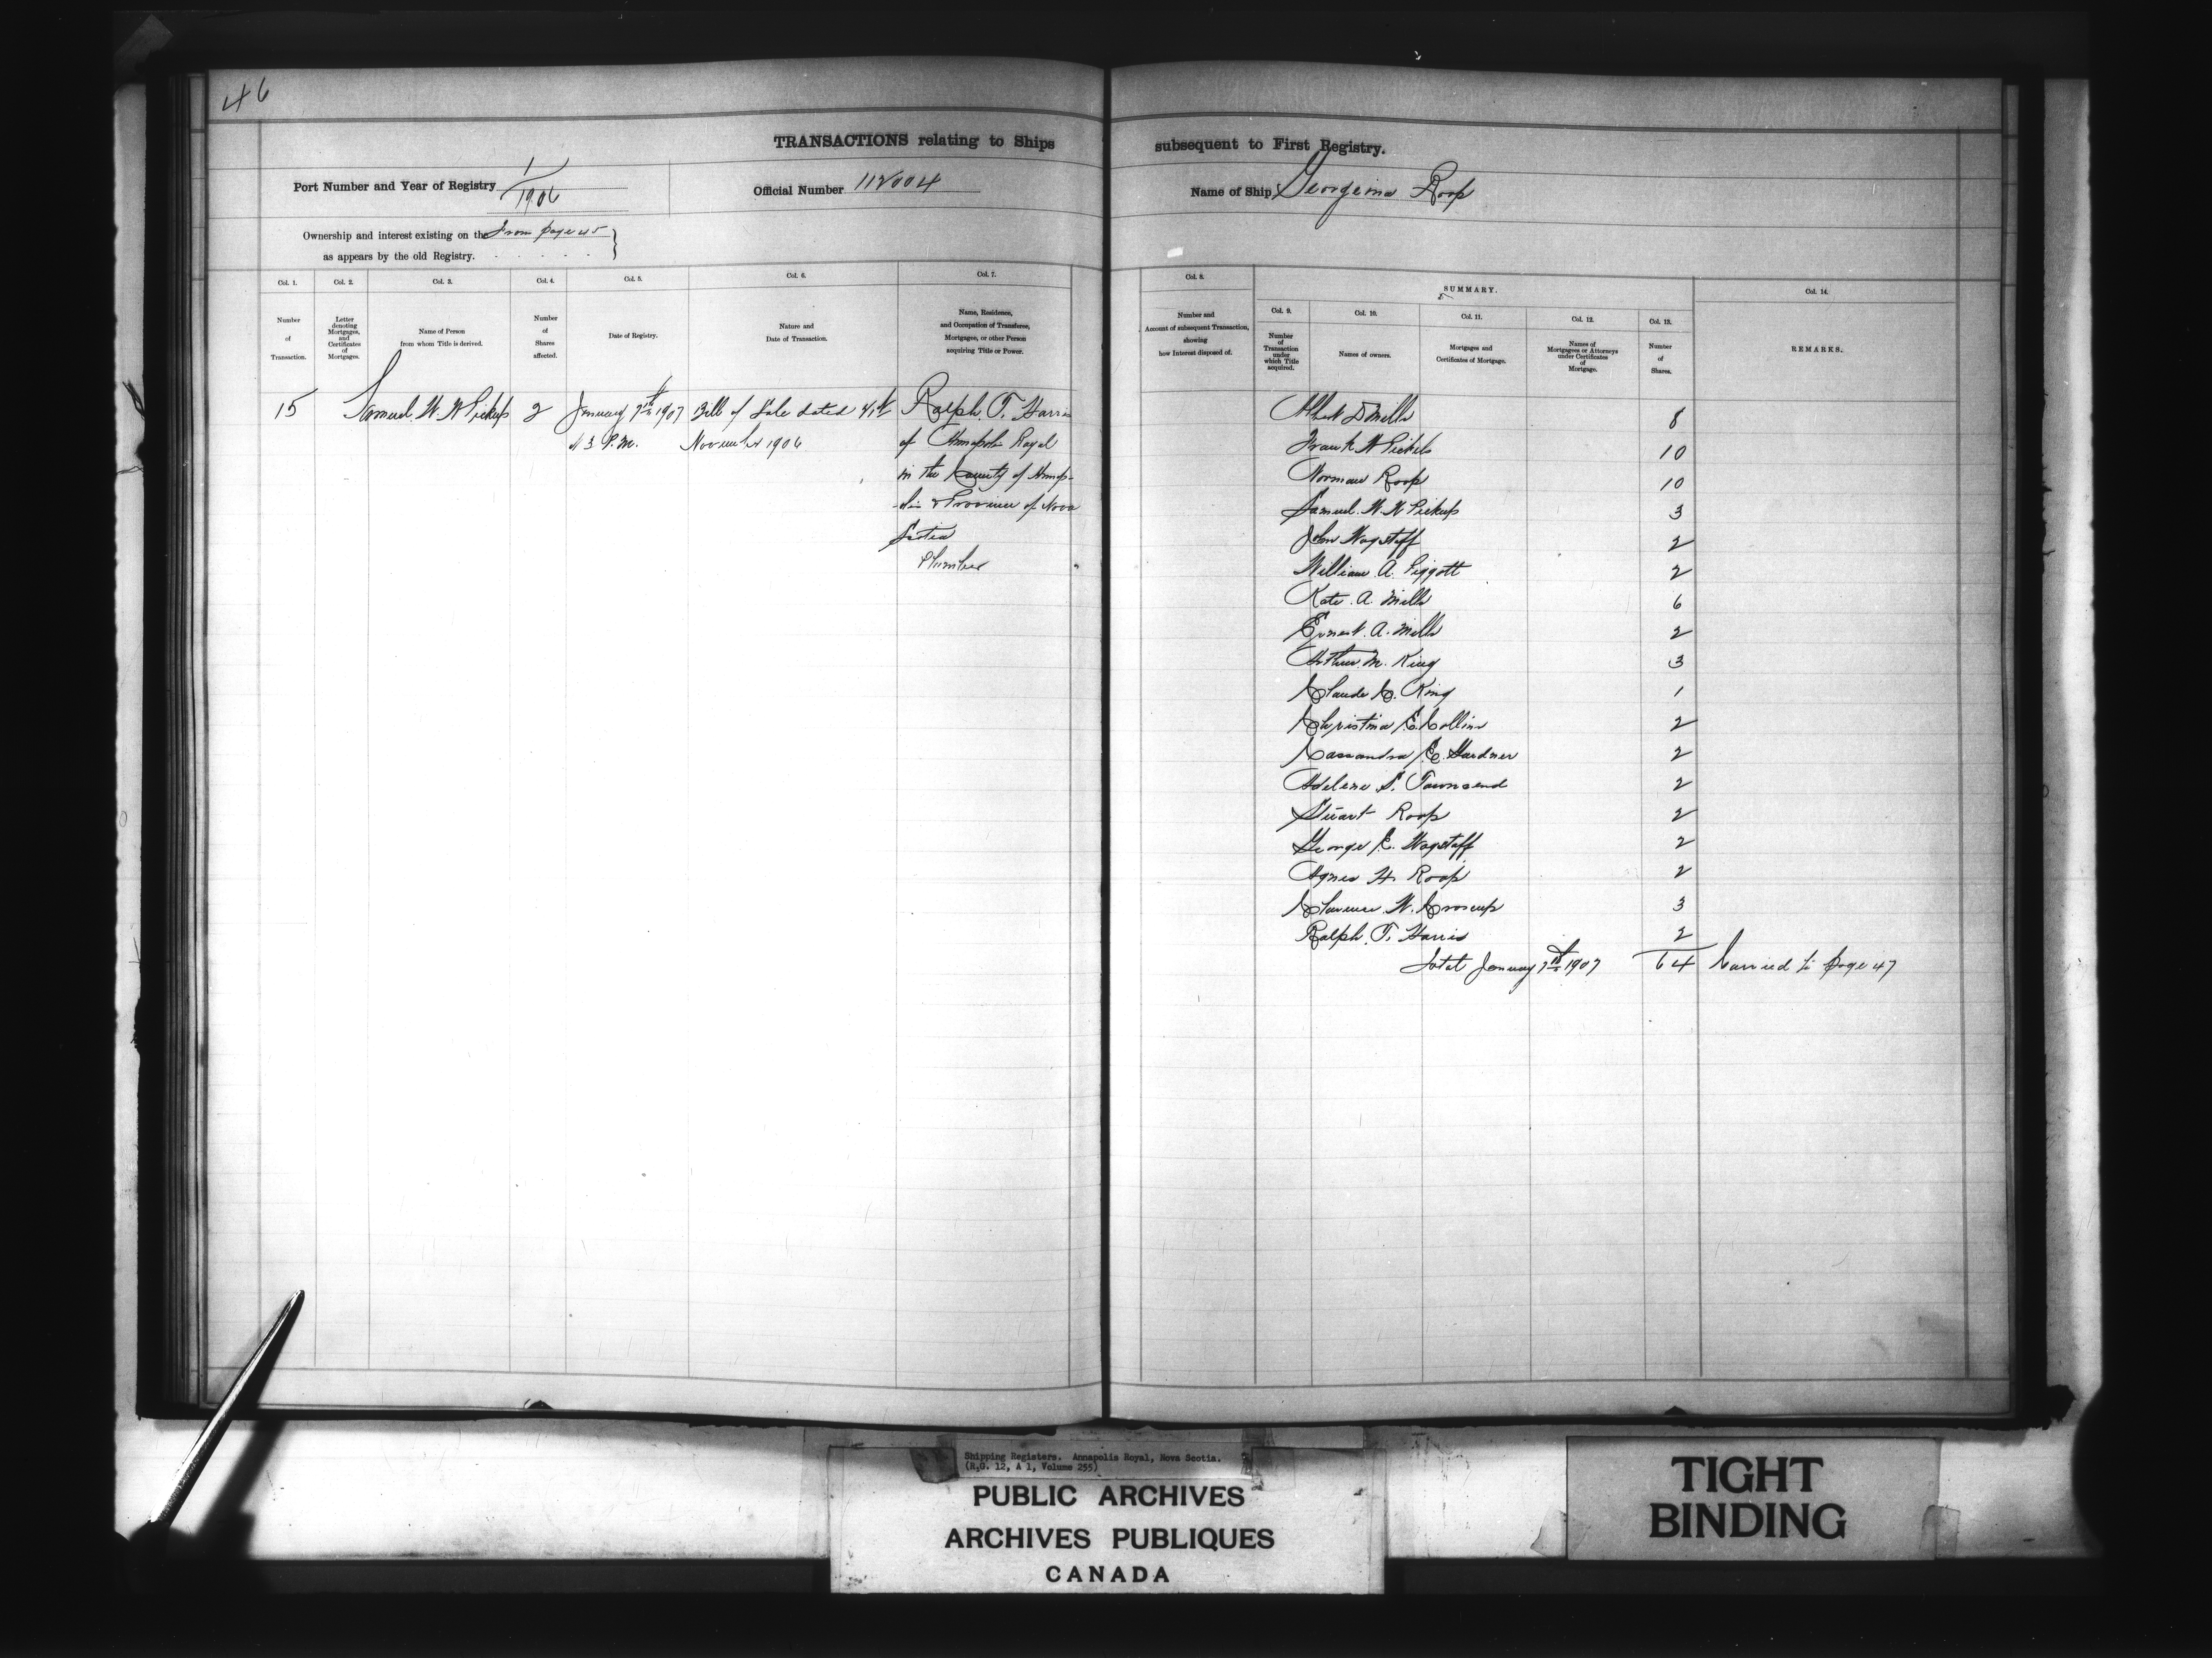 46
TRANSACTIONS relating to Ships subsequent to First Registry.
Port Number and Year of Registry 1/1906
Official Number 112004
Name of Ship Georgina Roop
Ownership and interest existing on the From page 45
as appears by the old Registry.
Col. 1. Col. 2. Col. 3. Col. 4. Col. 5. Col. 6. Col. 7. Col. 8. SUMMARY. Col. 14.
Col. 9. Col. 10. Col. 11. Col. 12. Col. 13.
Number of Transaction.
Letter denoting Mortgages, and Certificates of Mortgages.
Name of Person from whom Title is derived.
Number of Shares affected.
Date of Registry.
Nature and Date of Transaction.
Name, Residence, and Occupation of Transferee, Mortgagee, or other Person acquiring Title or Power.
Number and Account of subsequent Transaction, showing how Interest disposed of.
Number of Transaction under which Title acquired.
Names of owners.
Mortgages and Certificates of Mortgage.
Names of Mortgagees or Attorneys under Certificates of Mortgage.
Number of Shares.
REMARKS.
15 Samuel W. W Pickup 2 January 7th 1907 Bill of Sale dated Ralph T. Harris
at 3 P.M. November 1906 of Annapolis Royal
in the County of Annap-
olis & Province of Nova
Scotia
Plumber
Albert D Mills 8
Frank W Pickels 10
Norman Roop 10
Samuel. W. W Pickup 3
John Wagstaff 2
William A. Piggott 2
Kate. A. Mills 6
Ernest. A. Mills 2
Arthur M. King 3
Claude C. King 1
Christina E. Collins 2
Cassandra E. Gardner 2
Adelene S. Townsend 2
Stuart Roop 2
George E. Wagstaff 2
Agnes H. Roop 2
Clarence. W. Croscup 3
Ralph. T. Harris 2
Total January 7th 1907 64 Carried to page 47
Shipping Registers. Annapolis Royal, Nova Scotia.
(R.G. 12, A 1, Volume 255)
PUBLIC ARCHIVES
ARCHIVES PUBLIQUES
CANADA
TIGHT
BINDING